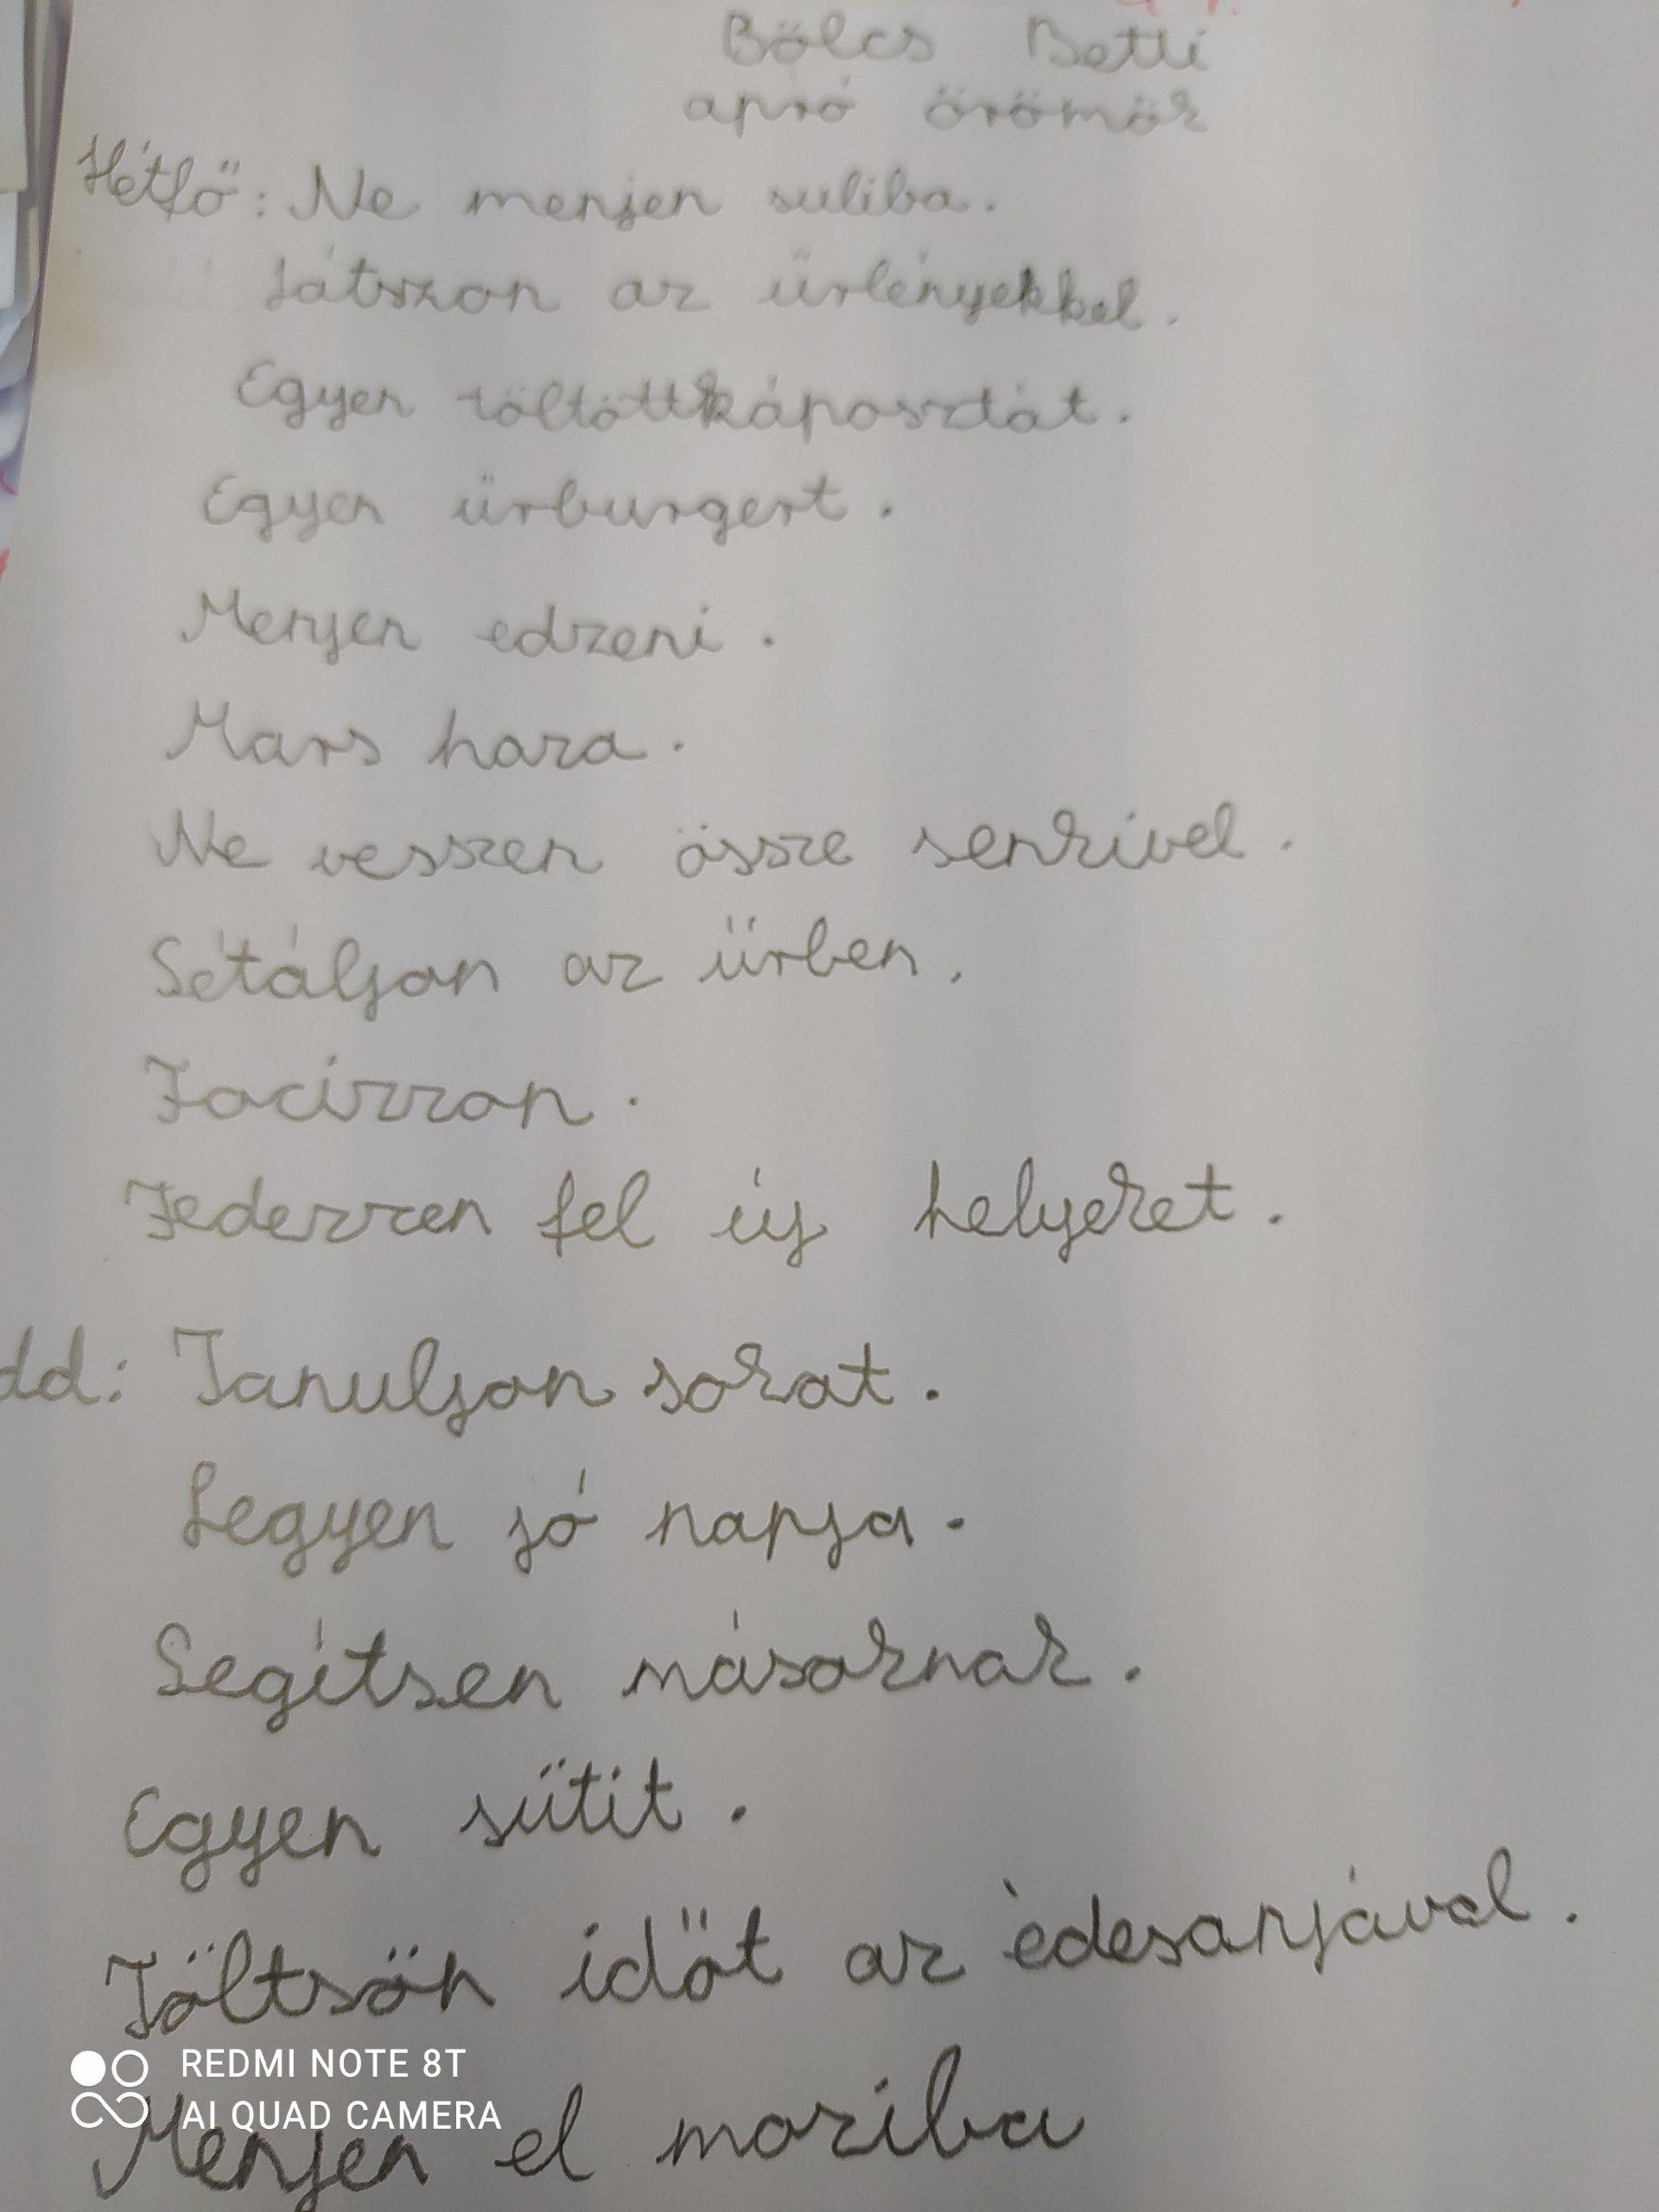 Bölcs Betti
apró örömök
Hétfő: Ne menjen suliba.
Játszon az űrlényekkel.
Egyen töltöttkáposztát.
Egyen űrburgert.
Menjen edzeni.
Mars haza.
Ne vesszen össze senkivel.
Sétáljon az űrben.
Focizzon.
Fedezzen fel új helyeket.
dd: Tanuljon sokat.
Legyen jó napja.
Segítsen másoknak.
Egyen sütit.
Töltsön időt az èdesanjával.
REDMI NOTE 8T
AI QUAD CAMERA
Menjen el moziba